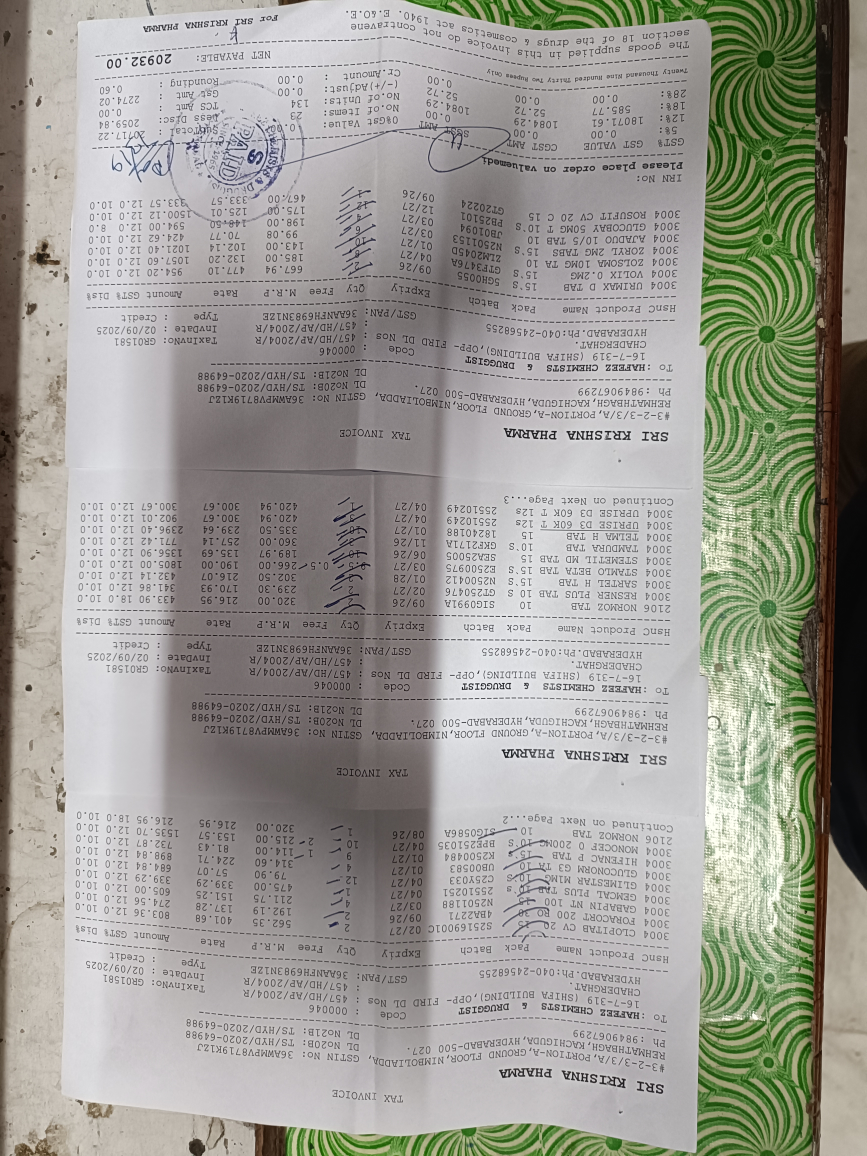 TAX INVOICE
SRI KRISHNA PHARMA
#3-2-3/3/A, PORTION-A, GROUND FLOOR, NIMBOLIADDA, GSTIN No: 36AWMPV8719K1ZJ
REHMATHBAGH, KACHIGUDA, HYDERABAD-500 027. DL No20B: TS/HYD/2020-64988
Ph :9849067299 DL No21B: TS/HYD/2020-64988
To :HAFEEZ CHEMISTS & DRUGGIST Code : 000046
16-7-319 (SHIFA BUILDING), OPP- FIRD DL Nos : 457/HD/AP/2004/R TaxInvNo: GR01581
CHADERGHAT. : 457/HD/AP/2004/R InvDate : 02/09/2025
HYDERABAD.Ph:040-24568255 GST/PAN: 36AANFH6983N1ZE Type : Credit
HsnC Product Name Pack Batch Expriy Qty Free M.R.P Rate Amount GST% Dis%
3004 CLOPITAB CV 20 15 SZS156901C 02/27 2 562.35 401.68 803.36 12.0 10.0
3004 FORACORT 200 RO 30 4BA2271 09/26 2 192.19 137.28 274.56 12.0 10.0
3004 GABAPIN NT 100 15 N2501188 03/27 4 211.75 151.25 605.00 12.0 10.0
3004 GEMCAL PLUS TAB 10's 25510251 04/27 1 475.00 339.29 339.29 12.0 10.0
3004 GLIMESTAR M1MG 10'S C25Y033 04/27 12 79.90 57.07 684.84 12.0 10.0
3004 GLUCONORM G3 TA 10 UBO0583 01/27 4 314.60 224.71 898.84 12.0 10.0
3004 HIFENAC P TAB 15's K2500484 01/27 9 1 114.00 81.43 732.87 12.0 10.0
3004 MONOCEF O 200MG 10's BPEP1035 04/27 10 2 215.00 153.57 1535.70 12.0 10.0
2106 NORMOZ TAB 10 SIG0586A 08/26 1 320.00 216.95 216.95 18.0 10.0
Continued on Next Page...2
TAX INVOICE
SRI KRISHNA PHARMA
#3-2-3/3/A, PORTION-A, GROUND FLOOR, NIMBOLIADDA, GSTIN No: 36AWMPV8719K1ZJ
REHMATHBAGH, KACHIGUDA, HYDERABAD-500 027. DL No20B: TS/HYD/2020-64988
Ph :9849067299 DL No21B: TS/HYD/2020-64988
To :HAFEEZ CHEMISTS & DRUGGIST Code : 000046
16-7-319 (SHIFA BUILDING), OPP- FIRD DL Nos : 457/HD/AP/2004/R TaxInvNo: GR01581
CHADERGHAT. : 457/HD/AP/2004/R InvDate : 02/09/2025
HYDERABAD.Ph:040-24568255 GST/PAN: 36AANFH6983N1ZE Type : Credit
HsnC Product Name Pack Batch Expriy Qty Free M.R.P Rate Amount GST% Dis%
2106 NORMOZ TAB 10 SIG0991A 09/26 2 320.00 216.95 433.90 18.0 10.0
3004 RESNER PLUS TAB 10 S GT250476 02/27 2 239.30 170.93 341.86 12.0 10.0
3004 SARTEL H TAB 15'S N2500412 01/28 2 302.50 216.07 432.14 12.0 10.0
3004 STAMLO BETA TAB 15'S EZ500975 03/27 9.5 0.5 266.00 190.00 1805.00 12.0 10.0
3004 STEMETIL MD TAB 15 SEA25005 06/26 10 189.97 135.69 1356.90 12.0 10.0
3004 TAMDURA TAB 10'S GKF2171A 11/26 3 360.00 257.14 771.42 12.0 10.0
3004 TELMA H TAB 15 18240188 01/27 10 335.50 239.64 2396.40 12.0 10.0
3004 UPRISE D3 60K T 12s 25510249 04/27 3 420.94 300.67 902.01 12.0 10.0
3004 UPRISE D3 60K T 12s 25510249 04/27 1 420.94 300.67 300.67 12.0 10.0
Continued on Next Page...3
TAX INVOICE
SRI KRISHNA PHARMA
#3-2-3/3/A, PORTION-A, GROUND FLOOR, NIMBOLIADDA, GSTIN No: 36AWMPV8719K1ZJ
REHMATHBAGH, KACHIGUDA, HYDERABAD-500 027. DL No20B: TS/HYD/2020-64988
Ph :9849067299 DL No21B: TS/HYD/2020-64988
To :HAFEEZ CHEMISTS & DRUGGIST Code : 000046
16-7-319 (SHIFA BUILDING), OPP- FIRD DL Nos : 457/HD/AP/2004/R TaxInvNo: GR01581
CHADERGHAT. : 457/HD/AP/2004/R InvDate : 02/09/2025
HYDERABAD.Ph:040-24568255 GST/PAN: 36AANFH6983N1ZE Type : Credit
HsnC Product Name Pack Batch Expriy Qty Free M.R.P Rate Amount GST% Dis%
3004 URIMAX D TAB 15'S 5GH0055 09/26 2 667.94 477.10 954.20 12.0 10.0
3004 VOLIX 0.2MG 15'S GTF3476A 04/27 8 185.00 132.20 1057.60 12.0 10.0
3004 ZOLSOMA 10MG TA 10 ZLMZ045D 01/27 10 143.00 102.14 1021.40 12.0 10.0
3004 ZORYL 2MG TABS 15'S N2501153 03/27 6 99.08 70.77 424.62 12.0 10.0
3004 AJADUO 10/5 TAB 10 JB01094 03/27 4 198.00 148.50 594.00 12.0 8.0
3004 GLUCOBAY 50MG T 10'S PB25101 12/27 12 175.00 125.01 1500.12 12.0 10.0
3004 ROSUFIT CV 20 C 15 GT20224 09/26 1 467.00 333.57 333.57 12.0 10.0
IRN No:
Please on order place on valuemedi
GST% GST VALUE CGST AMT SGST AMT 0%Gst Value: 0.00 SubTotal : 20117.22
5%: 0.00 0.00 0.00 No.of Items: 23 Less Disc: 2059.84
12%: 18071.61 1084.29 1084.29 No.of Units: 134 TCS Amt : 0.00
18%: 585.77 52.72 52.72 (-/+)Adjust: 0.00 Gst Amt : 2274.02
28%: 0.00 0.00 0.00 Cr.Amount : 0.00 Rounding : 0.60
Twenty Thousand Nine Hundred Thirty Two Rupees Only
NET PAYABLE: 20932.00
The goods supplied in this invoice do not contravene
section 18 of the drugs & cosmetics act 1940. E.&O.E.
For SRI KRISHNA PHARMA